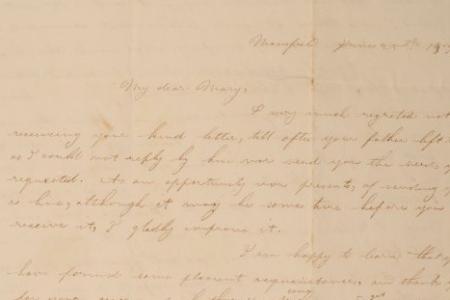 Mansfield June
My dear Mary,
I very much regretted not
receiving your kind letter, till after your father left
as I could not reply by him nor send you the
requested. As an opportunity now presents, of sending
to him, although it may be some time before you
receive it, I gladly improve it.
I am happy to learn that
have formed some pleasant acquaintances, and